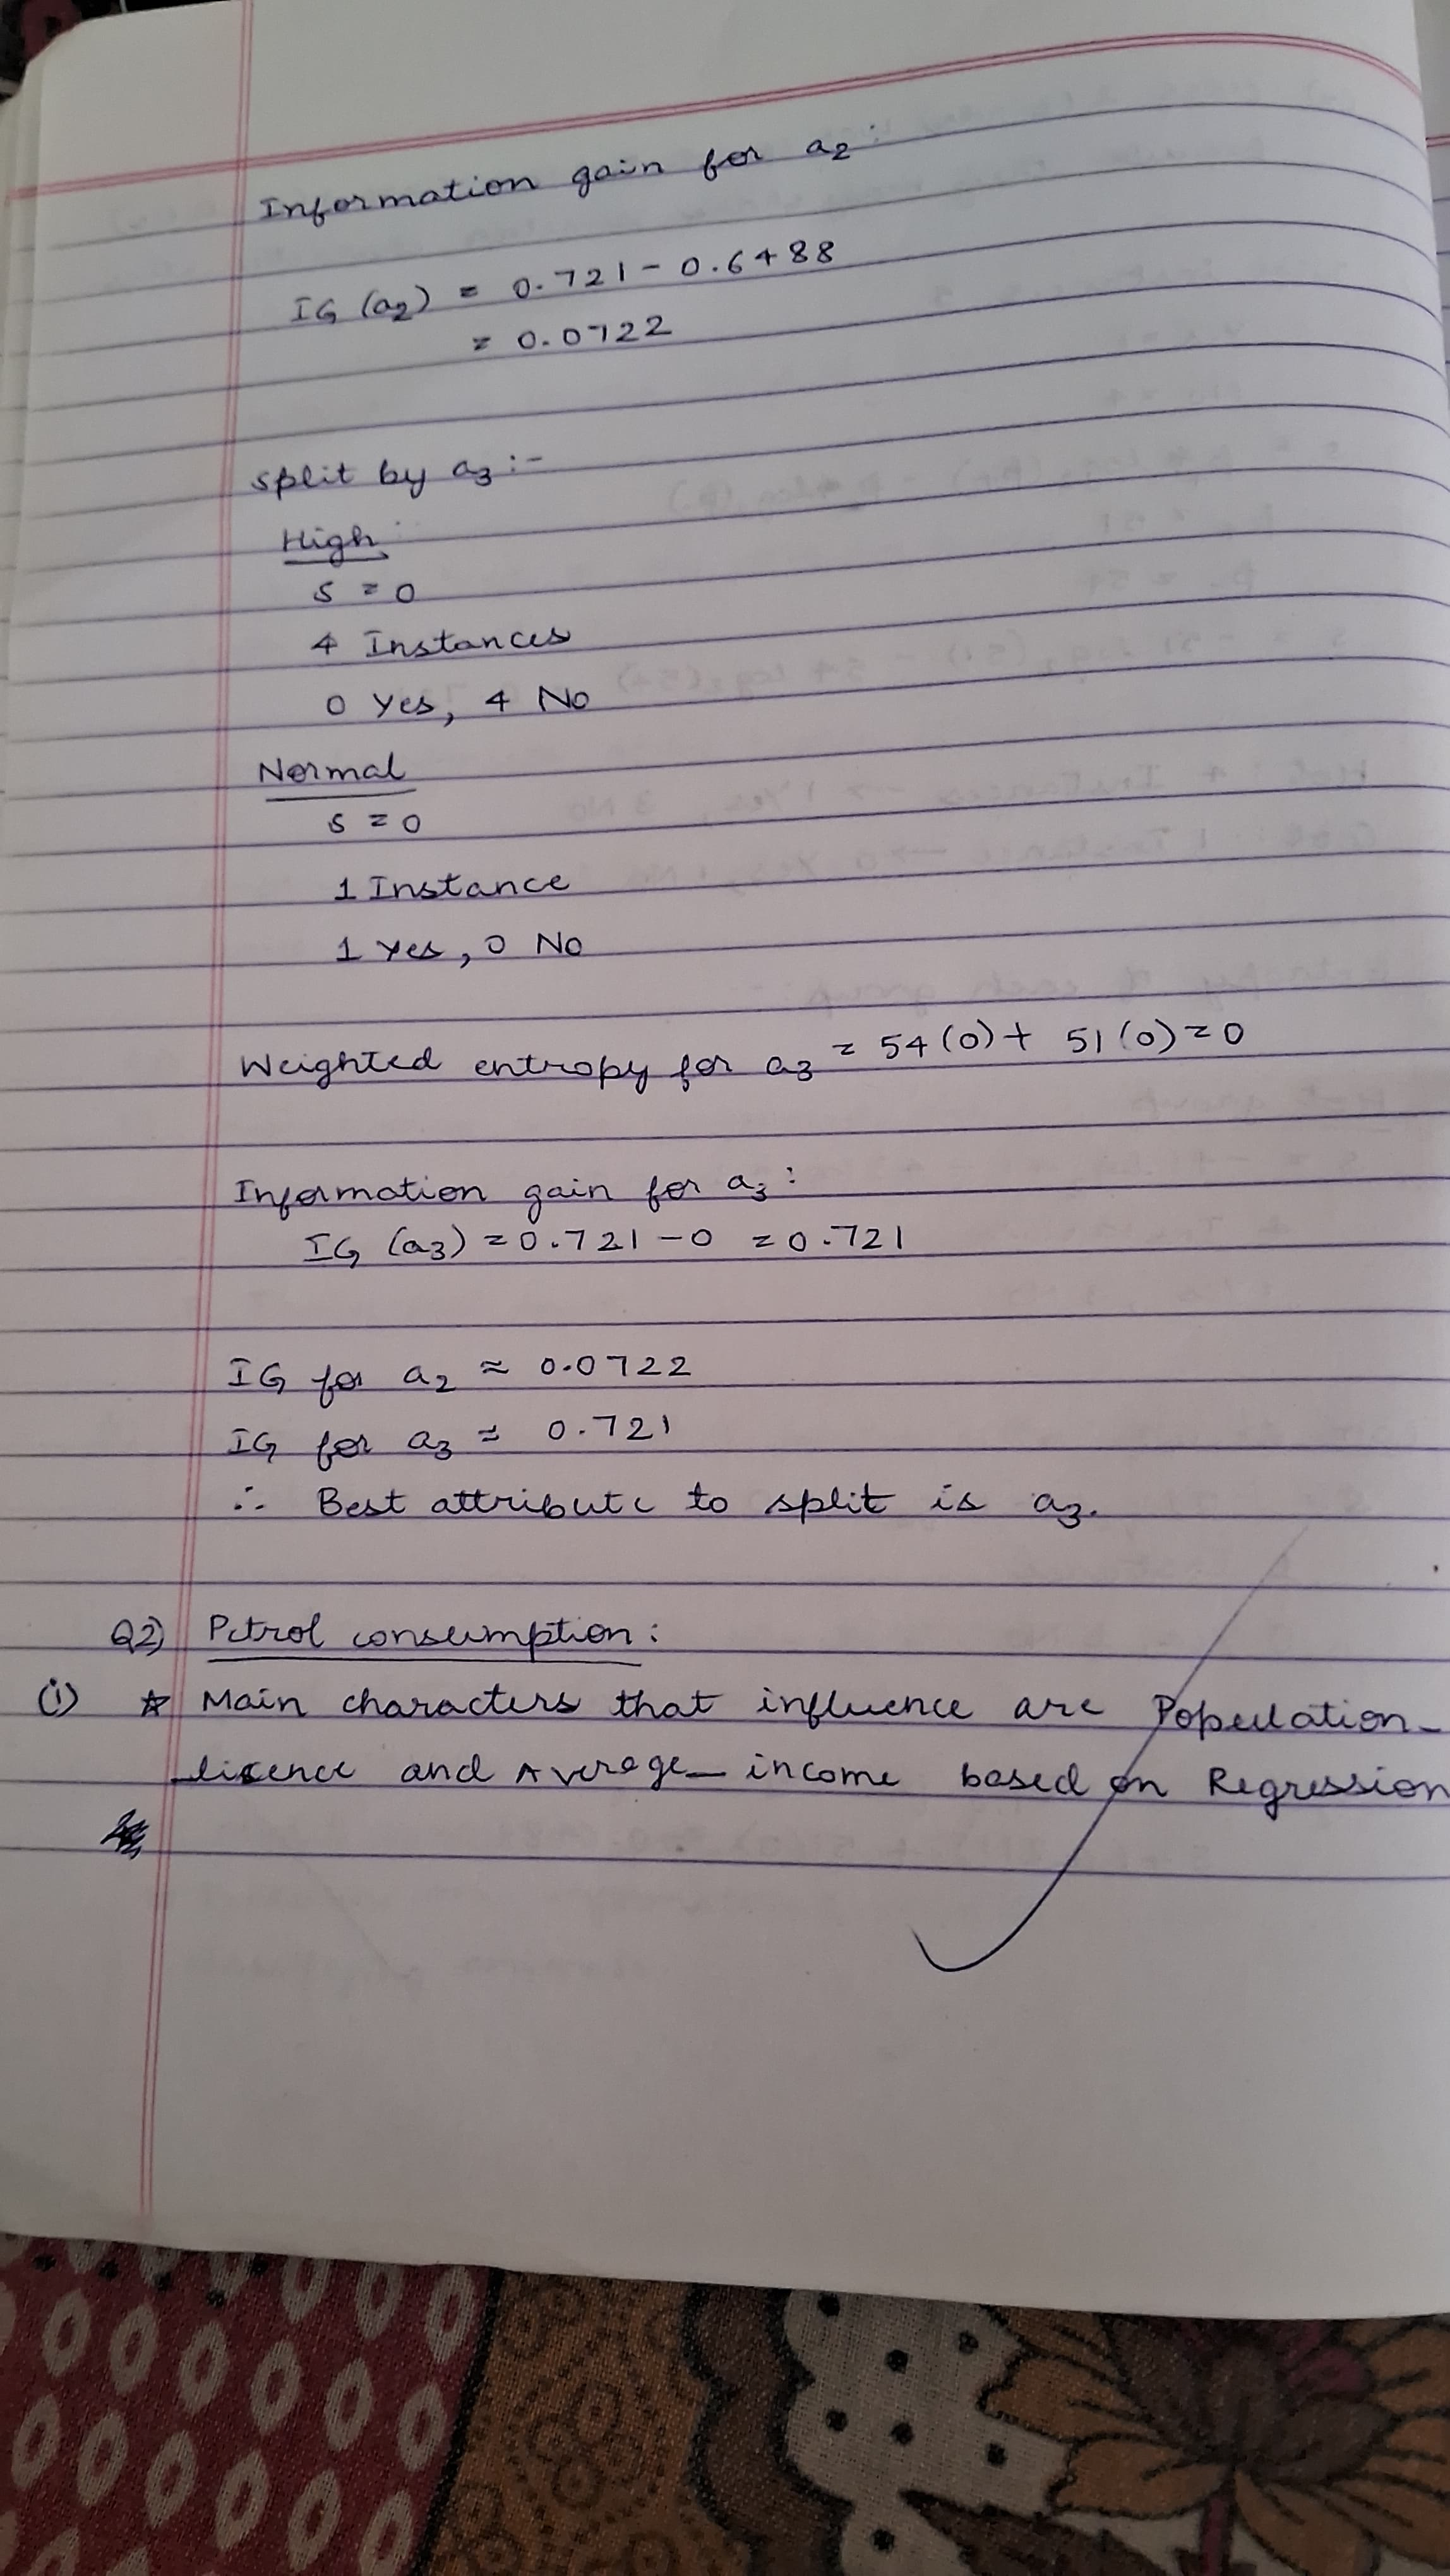 Information gain for a2:
IG (a2) = 0.721 - 0.6488
= 0.0722
Split by a3 :-
High:
S = 0
4 Instances
0 Yes, 4 No
Normal
S = 0
1 Instance
1 Yes, 0 No
Weighted entropy for a3 = 54(0) + 51(0) = 0
Information gain for a3 :
IG (a3) = 0.721 - 0 = 0.721
IG for a2 ≈ 0.0722
IG for a3 ≈ 0.721
∴ Best attribute to split is a3.
Q2) Petrol consumption :
(i) ☆ Main characters that influence are Population_
lisence and Average_income based on Regression